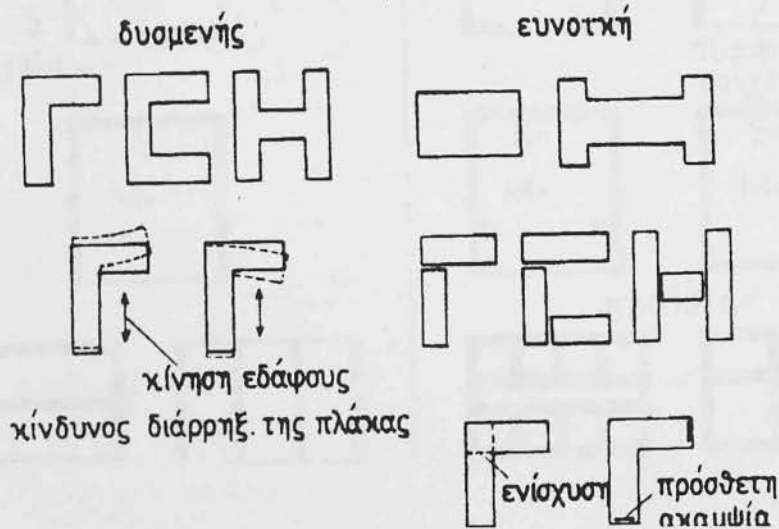 δυσμενής
ευνοτκή
κίνηση εδάφους
κίνδυνος διάρρηξ. της πλάκας
ενίσχυση
πρόσθετη
ακαμψία